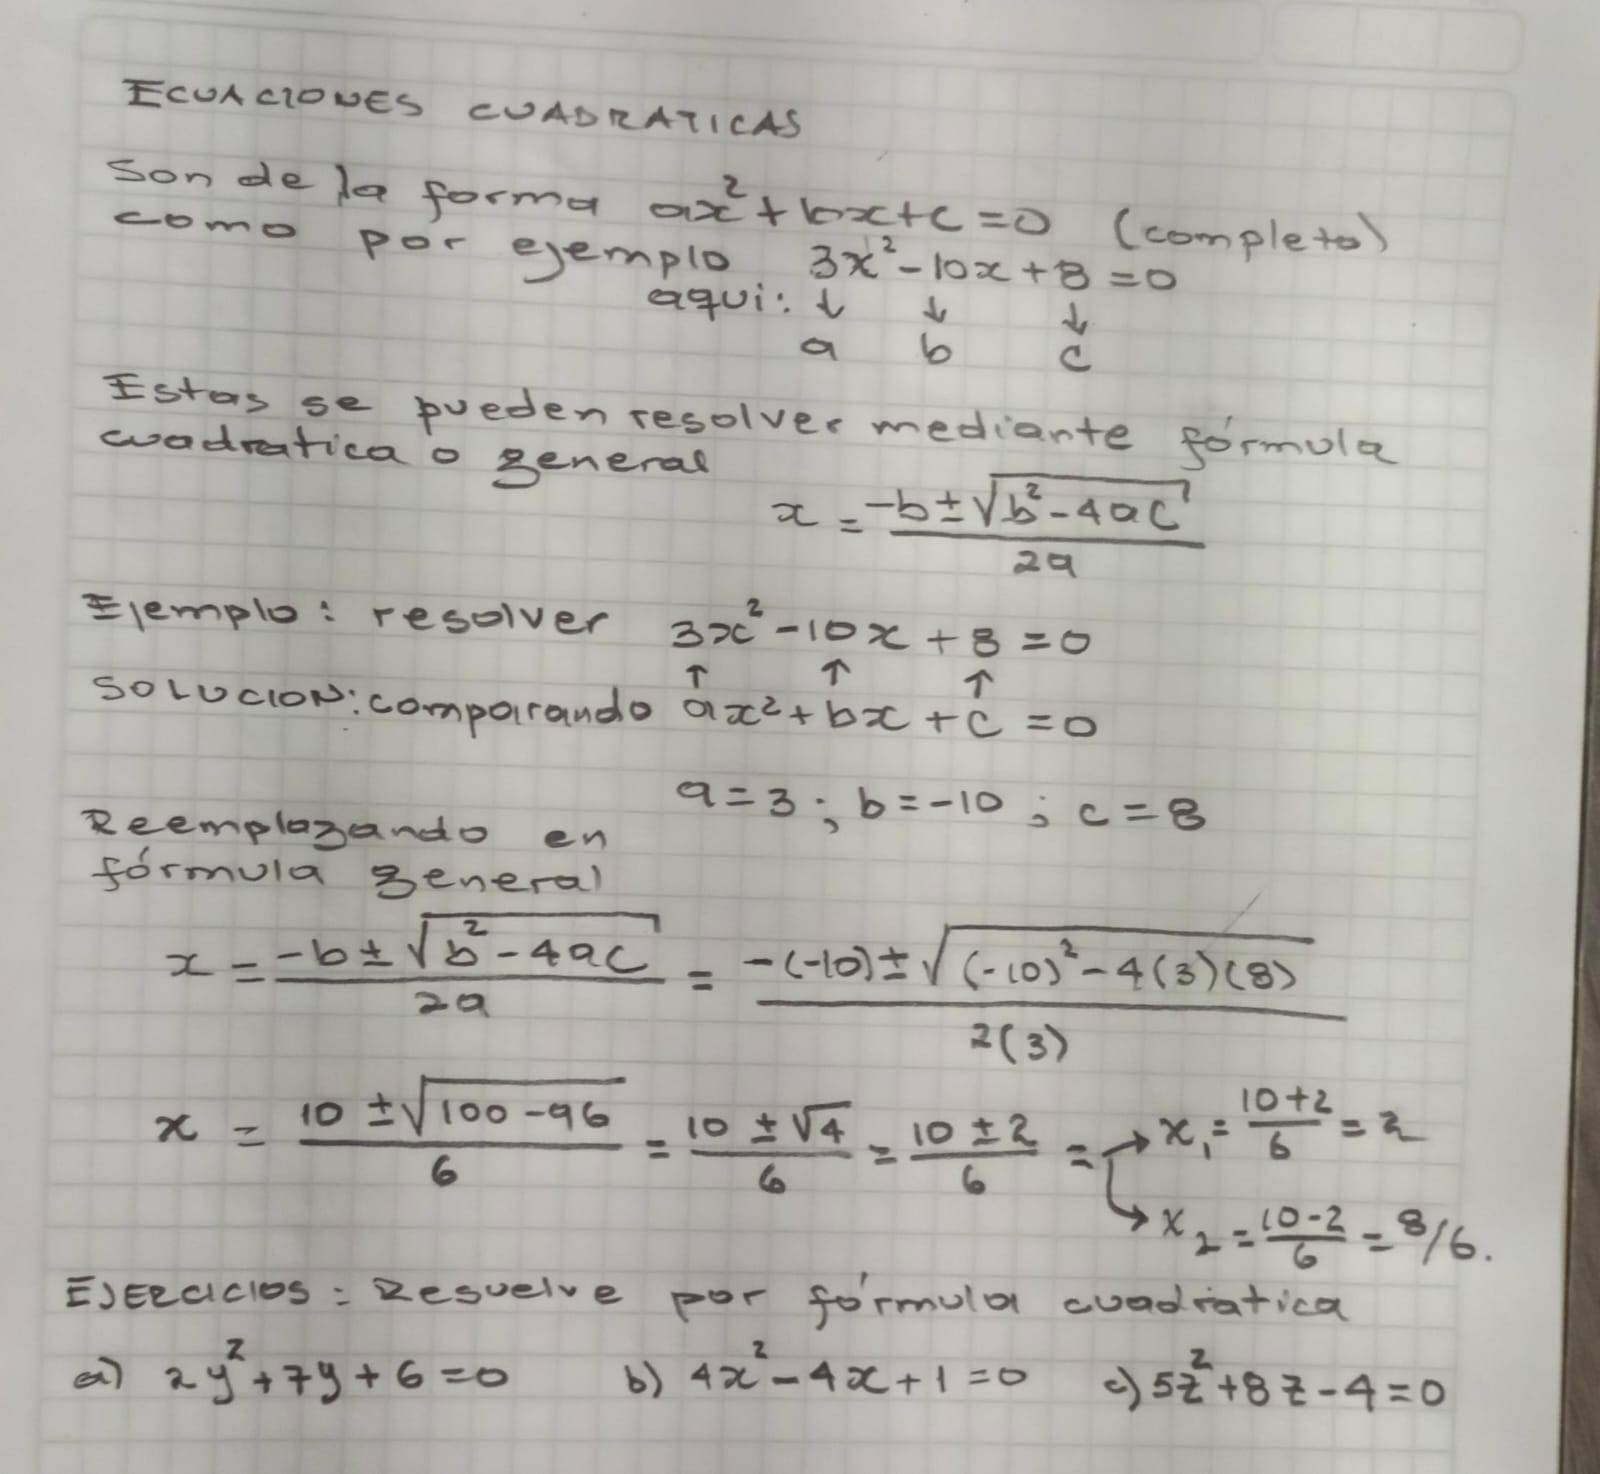 ECUACIONES CUADRATICAS
Son de la forma ax²+bx+c=0 (completo)
como por ejemplo 3x²-10x+8=0
aqui: ↓ ↓ ↓
a b c
Estas se pueden resolver mediante fórmula
cuadratica o general
x = (-b±√(b²-4ac))/2a
Ejemplo: resolver 3x²-10x+8=0
↑ ↑ ↑
SOLUCION: comparando ax²+bx+c=0
a=3; b=-10; c=8
Reemplazando en
fórmula general
x = (-b±√(b²-4ac))/2a = (-(-10)±√((-10)²-4(3)(8)))/2(3)
x = (10±√(100-96))/6 = (10±√4)/6 = (10±2)/6 = → x₁ = (10+2)/6 = 2
→ x₂ = (10-2)/6 = 8/6.
EJERCICIOS: Resuelve por fórmula cuadratica
a) 2y²+7y+6=0 b) 4x²-4x+1=0 c) 5z²+8z-4=0